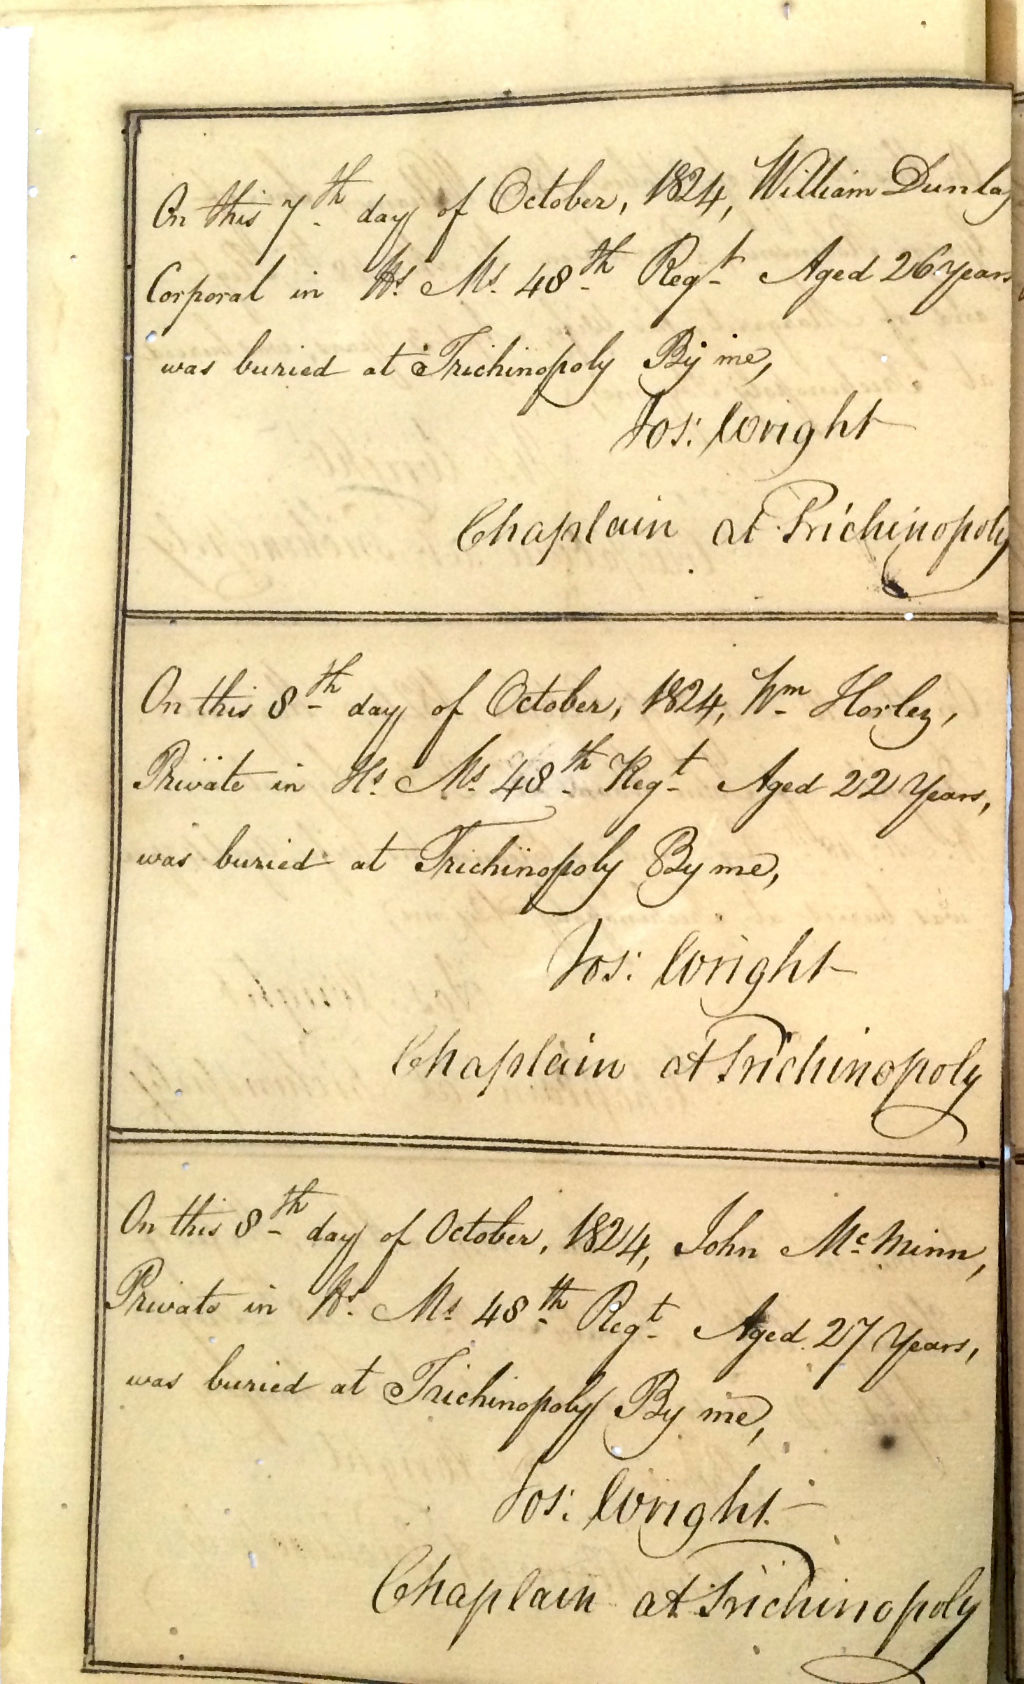 On this 7th day of October, 1824, William Dunlay
Corporal in Hs. Ms. 48th Regt Aged 26 Years
was buried at Trichinopoly By me,
Jos: Wright
Chaplain at Trichinopoly
On this 8th day of October, 1824, Wm Horley,
Private in Hs. Ms. 48th Regt Aged 22 Years,
was buried at Trichinopoly By me,
Jos: Wright
Chaplain at Trichinopoly
On this 8th day of October, 1824, John McMinn,
Private in Hs. Ms. 48th Regt Aged 27 Years,
was buried at Trichinopoly By me,
Jos: Wright
Chaplain at Trichinopoly